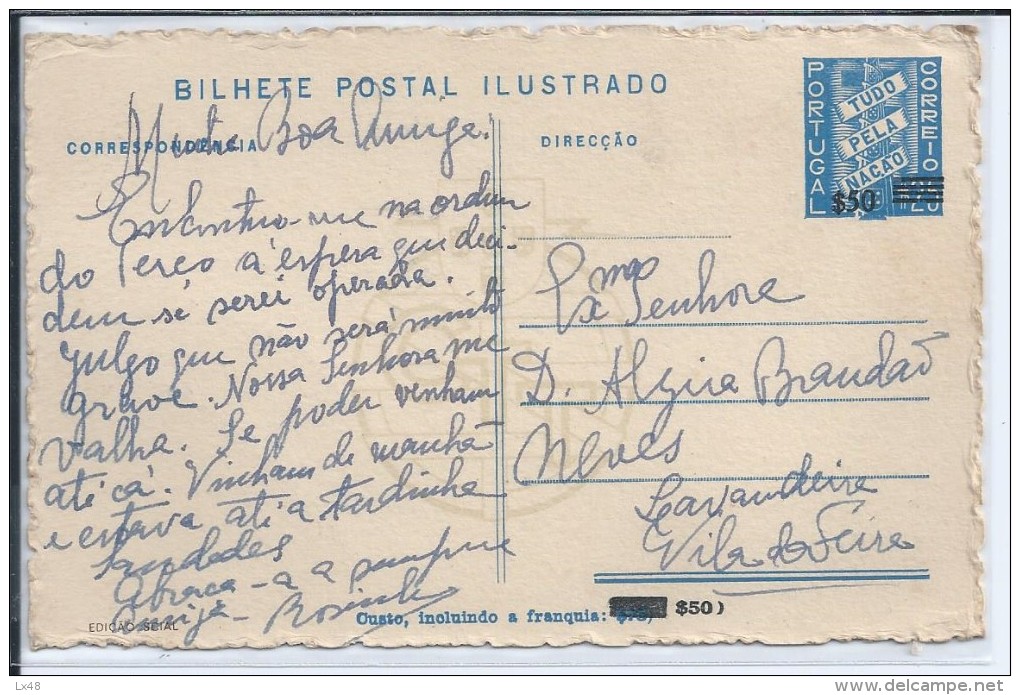 BILHETE POSTAL ILUSTRADO
PORTUGAL
CORREIO
TUDO
PELA
NAÇÃO
$50
CORRESPONDENCIA
DIRECÇÃO
Minha Boa Amiga:
Encontro-me na ordem
do Terço á espera que deci-
dem se serei operada.
Julgo que não será muito
grave. Nossa Senhora me
valha. Se poder venham
até cá. Vinham de manhã
e estava até a tardinha
Saudades
Abraça-a a sempre
Exma Senhora
D. Alzira Brandão
Neves
Lavandeira
Vila da Feira
Custo, incluindo a franquia: $50)
EDIÇÃO SEIAL
Lx48
www.delcampe.net